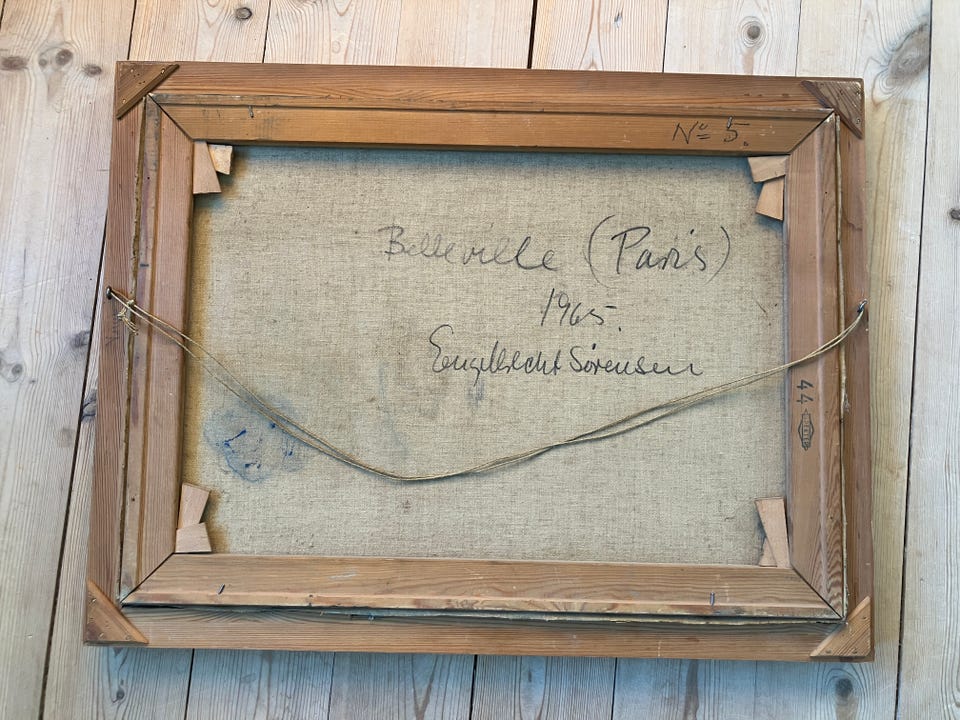 Nº 5.
Belleville (Paris)
1965.
Engelbrecht Sörensen
44